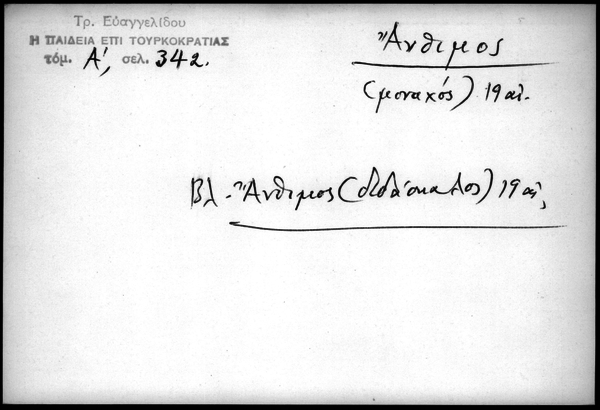 Τρ. Εὐαγγελίδου
Η ΠΑΙΔΕΙΑ ΕΠΙ ΤΟΥΡΚΟΚΡΑΤΙΑΣ
τόμ. Α', σελ. 342.
Ἄνθιμος
(μοναχός) 19 αἰ.
Βλ. Ἄνθιμος (διδάσκαλος) 19 αἰ.